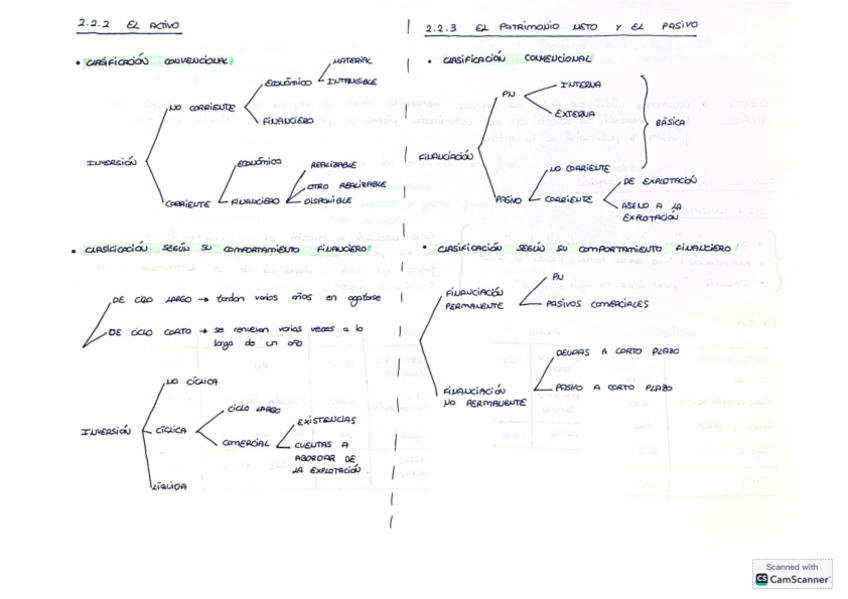 2.2.2 EL ACTIVO
• CLASIFICACIÓN CONVENCIONAL:
MATERIAL
ECONÓMICO
INTANGIBLE
NO CORRIENTE
FINANCIERO
INVERSIÓN
ECONÓMICO
REALIZABLE
OTRO REALIZABLE
CORRIENTE
FINANCIERO
DISPONIBLE
• CLASIFICACIÓN SEGÚN SU COMPORTAMIENTO FINANCIERO:
DE CICLO LARGO → tardan varios años en agotarse
DE CICLO CORTO → se renuevan varias veces a lo
largo de un año
NO CÍCLICA
CICLO LARGO
EXISTENCIAS
INVERSIÓN
CÍCLICA
COMERCIAL
CUENTAS A
ABORDAR DE
LA EXPLOTACIÓN
LÍQUIDA
2.2.3 EL PATRIMONIO NETO Y EL PASIVO
• CLASIFICACIÓN CONVENCIONAL:
INTERNA
PN
EXTERNA
BÁSICA
FINANCIACIÓN
NO CORRIENTE
DE EXPLOTACIÓN
PASIVO
CORRIENTE
AJENO A LA
EXPLOTACIÓN
• CLASIFICACIÓN SEGÚN SU COMPORTAMIENTO FINANCIERO:
PN
FINANCIACIÓN
PERMANENTE
PASIVOS COMERCIALES
DEUDAS A CORTO PLAZO
FINANCIACIÓN
NO PERMANENTE
PASIVO A CORTO PLAZO
Scanned with
CS CamScanner